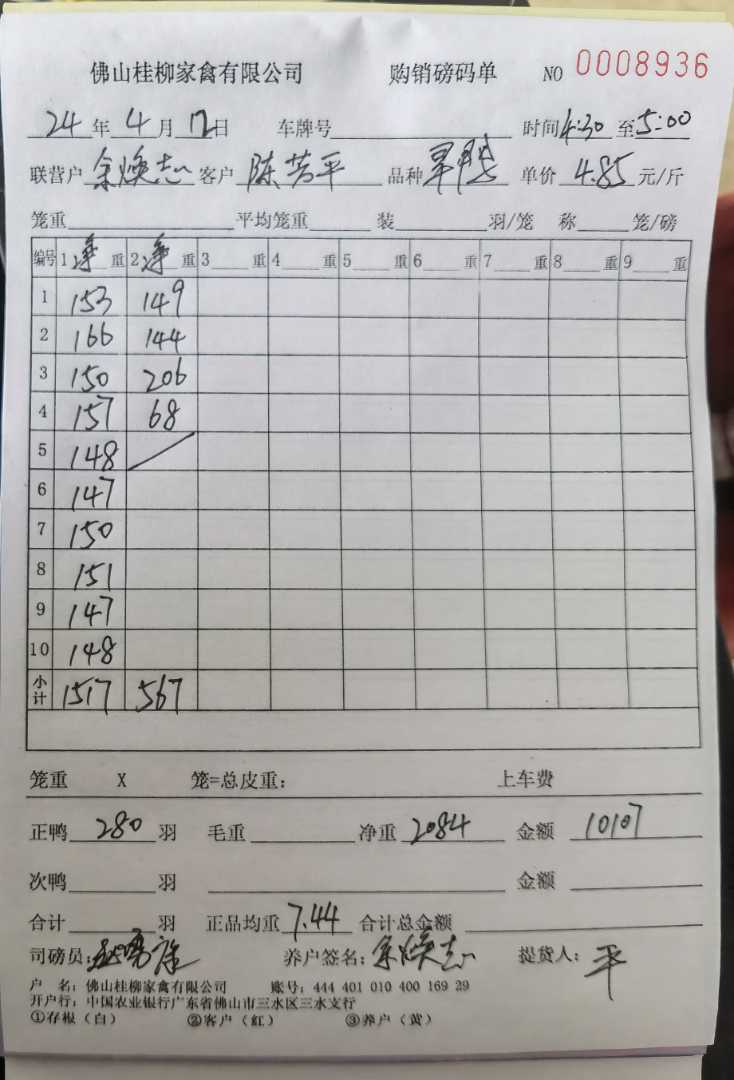 佛山桂柳家禽有限公司 购销磅码单 NO 0008936
24 年 4 月 12 日 车牌号 时间 4:30 至 5:00
联营户 余焕志 客户 陈芳平 品种 单价 4.85 元/斤
笼重 平均笼重 装 羽/笼 称 笼/磅
编号 1 净 重 2 净 重 3 重 4 重 5 重 6 重 7 重 8 重 9 重
1 153 149
2 166 144
3 150 206
4 157 68
5 148
6 147
7 150
8 151
9 147
10 148
小计 1517 567
笼重 X 笼=总皮重: 上车费
正鸭 280 羽 毛重 净重 2084 金额 10107
次鸭 羽 金额
合计 羽 正品均重 7.44 合计总金额
司磅员: 养户签名: 余焕志 提货人: 平
户 名: 佛山桂柳家禽有限公司 账号: 444 401 010 400 169 29
开户行: 中国农业银行广东省佛山市三水区三水支行
①存根(白) ②客户(红) ③养户(黄)